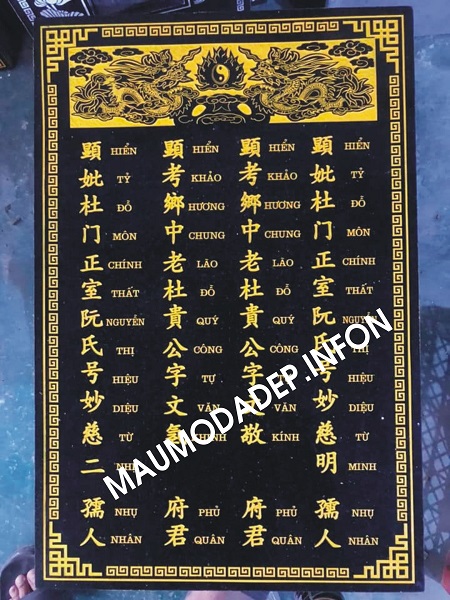 顕妣杜门正室阮氏号妙慈明 孺人
HIỂN TỶ ĐỖ MÔN CHÍNH THẤT NGUYỄN THỊ HIỆU DIỆU TỪ MINH NHỤ NHÂN
顕考鄉中老杜貴公字敬 府君
HIỂN KHẢO HƯƠNG CHUNG LÃO ĐỖ QUÝ CÔNG VĂN KÍNH PHỦ QUÂN
顕考鄉中老杜貴公字文 府君
HIỂN KHẢO HƯƠNG CHUNG LÃO ĐỖ QUÝ CÔNG TỰ VĂN PHỦ QUÂN
顕妣杜门正室阮氏号妙慈二 孺人
HIỂN TỶ ĐỖ MÔN CHÍNH THẤT NGUYỄN THỊ HIỆU DIỆU TỪ NHỊ NHỤ NHÂN
MAUMODADEP.INFON